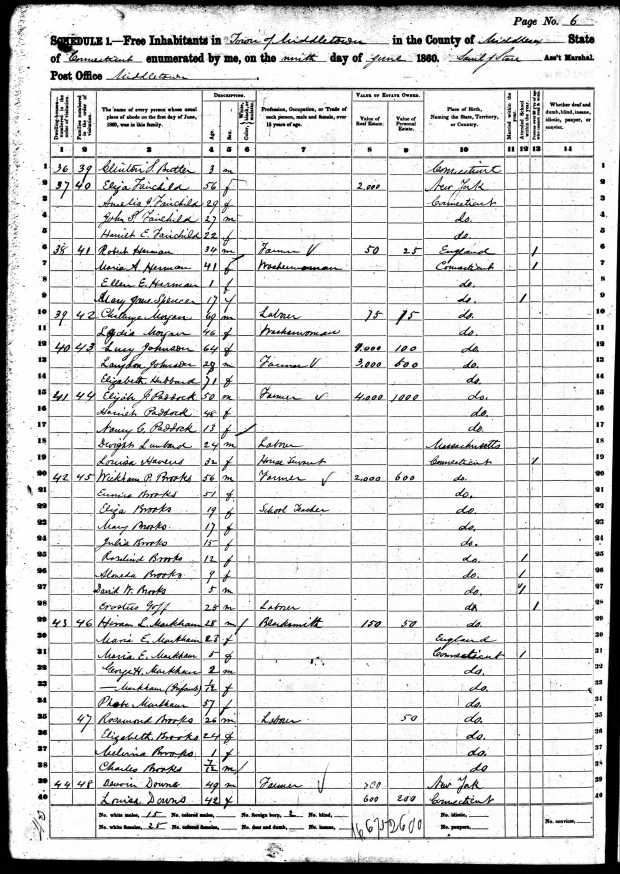 Page No. 6
SCHEDULE 1.—Free Inhabitants in Town of Middletown in the County of Middlesex State
of Connecticut enumerated by me, on the ninth day of June 1860. Ass't Marshal.
Post Office Middletown
DESCRIPTION. VALUE OF ESTATE OWNED.
The name of every person whose usual place of abode on the first day of June, 1860, was in this family. Age. Sex. Profession, Occupation, or Trade of each person, male and female, over 15 years of age. Value of Real Estate. Value of Personal Estate. Place of Birth, Naming the State, Territory, or Country. Married within the year. Attended School within the year. Whether deaf and dumb, blind, insane, idiotic, pauper, or convict.
1 2 3 4 5 6 7 8 9 10 11 12 13 14
1 36 39 Clinton S. Butler 3 m Connecticut 1
2 37 40 Eliza Fairchild 56 f 2.000 New York 2
3 Amelia J. Fairchild 29 f Connecticut 3
4 John S. Fairchild 27 m do. 4
5 Harriet E. Fairchild 22 f do. 5
6 38 41 Robert Herman 34 m Farmer 50 25 England 1 6
7 Maria A. Herman 41 f Washerwoman Connecticut 1 7
8 Ellen E. Herman 1 f do. 8
9 Mary Jane Spencer 17 f do. 1 9
10 39 42 Morgan 69 m Laborer 75 75 do. 10
11 Lydia Morgan 46 f Washerwoman do. 11
12 40 43 Lucy Johnson 64 f 1.000 100 do. 12
13 Langdon Johnson 28 m Farmer 3,000 600 do. 13
14 Elizabeth Hubbard 71 f do. 14
15 41 44 Elijah J. Paddock 50 m Farmer 4,000 1000 do. 15
16 Harriet Paddock 48 f do. 16
17 Nancy C. Paddock 13 f do. 17
18 Dwight Lombard 24 m Laborer Massachusetts 18
19 Louisa Havens 32 f House Servant Connecticut 1 19
20 42 45 Wickham P. Brooks 56 m Farmer 2.000 600 do. 20
21 Eunice Brooks 51 f do. 21
22 Eliza Brooks 19 f School Teacher do. 22
23 Mary Brooks 17 f do. 23
24 Julia Brooks 15 f do. 24
25 Rosalind Brooks 12 f do. 1 25
26 Alameda Brooks 9 f do. 1 26
27 David W. Brooks 5 m do. 1 27
28 Erastus Goff 28 m Laborer do 1 28
29 43 46 Hiram L. Markham 28 m Blacksmith 150 50 do. 29
30 Maria E. Markham 23 f England 30
31 Maria E. Markham 5 f Connecticut 1 31
32 George H. Markham 2 m do. 32
33 — Markham (Infant) 1/12 f do. 33
34 Phebe Markham 57 f do. 34
35 47 Rosamond Brooks 26 m Laborer 50 do. 35
36 Elizabeth Brooks 24 f do. 36
37 Melvina Brooks 1 f do. 37
38 Charles Brooks 7/12 m do 38
39 44 48 Downs 49 m Farmer New York 39
40 Louisa Downs 42 f 600 200 Connecticut 40
No. white males, 15 No. colored males, No. foreign born, 2 No. blind, No. idiotic, No. convicts,
No. white females, 25 No. colored females, No. deaf and dumb, No. insane, No. paupers,